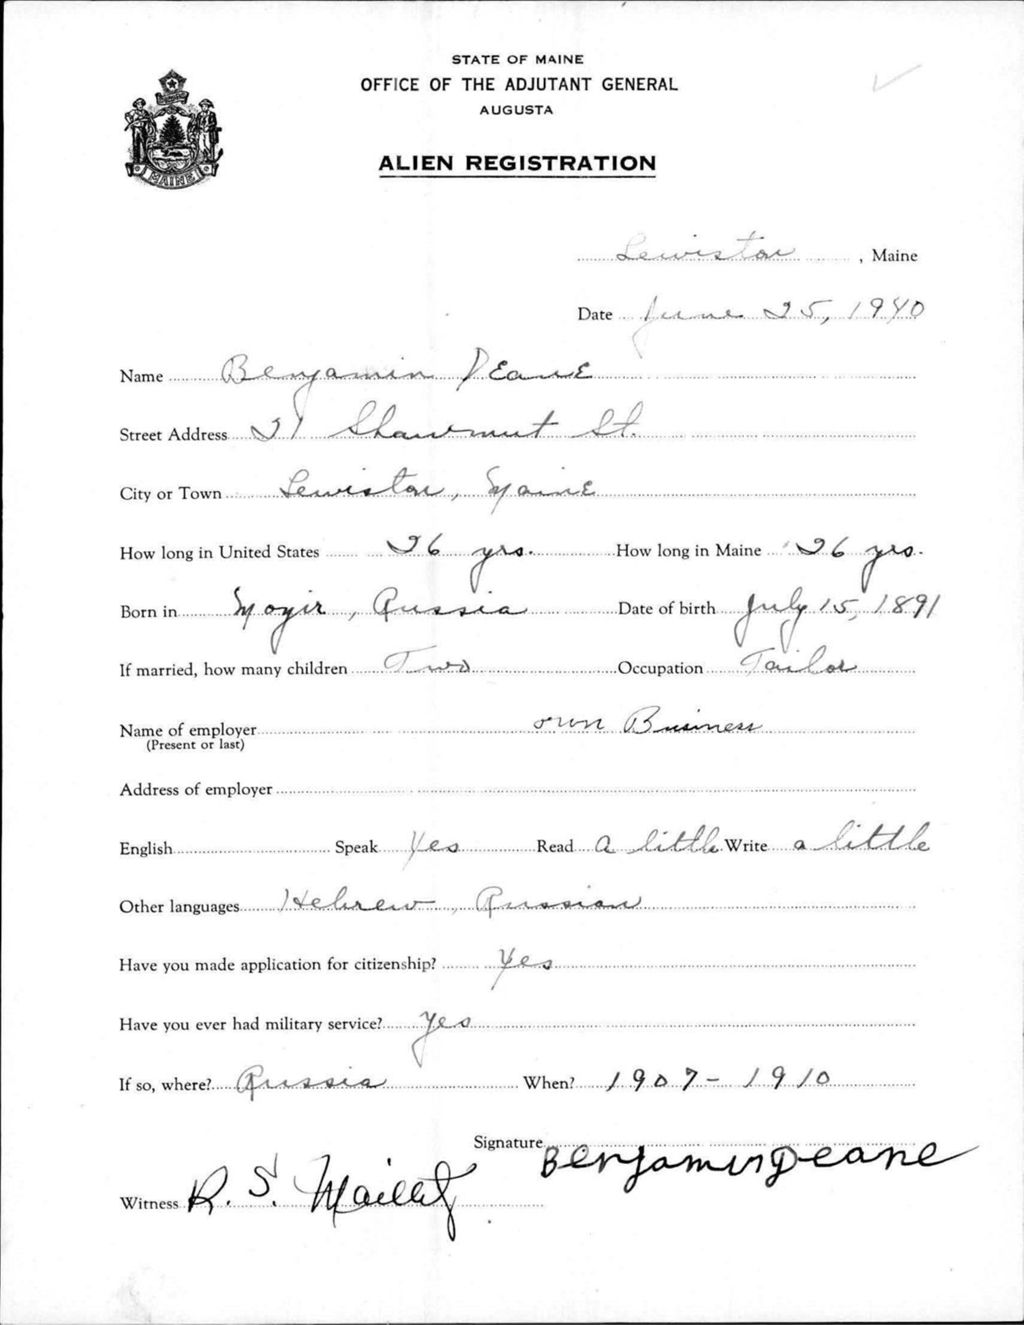 STATE OF MAINE
OFFICE OF THE ADJUTANT GENERAL
AUGUSTA
MAINE
ALIEN REGISTRATION
Lewiston, Maine
Date June 25, 1940
Name Benjamin Deane
Street Address 21 Shawmut St.
City or Town Lewiston, Maine
How long in United States 26 yrs. How long in Maine 26 yrs.
Born in Mogir, Russia Date of birth July 15, 1891
If married, how many children Two Occupation Tailor
Name of employer own Business
(Present or last)
Address of employer
English Speak Yes Read a little Write a little
Other languages Hebrew, Russian
Have you made application for citizenship? Yes
Have you ever had military service? Yes
If so, where? Russia When? 1907 - 1910
Signature Benjamin Deane
Witness R. S. Maillet